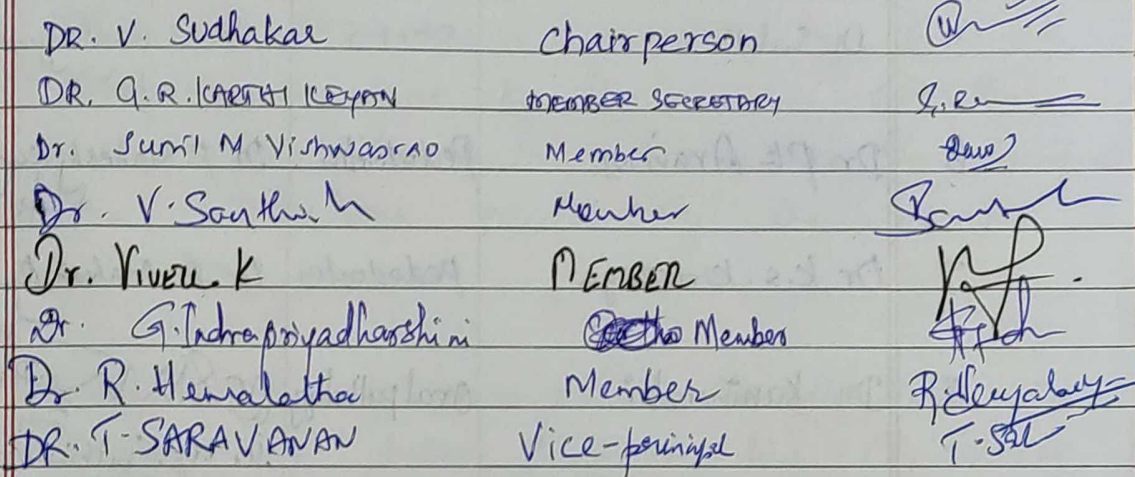 DR. V. Sudhakar Chairperson
DR. G.R. KARTHIKEYAN MEMBER SECRETARY
Dr. Sunil M Vishwasrao Member
Dr. V. Santhosh Member
Dr. VIVEK. K MEMBER
Dr. G. Indrapriyadharshini Member
Dr. R. Hemalatha Member
DR. T. SARAVANAN Vice-principal T. Sar